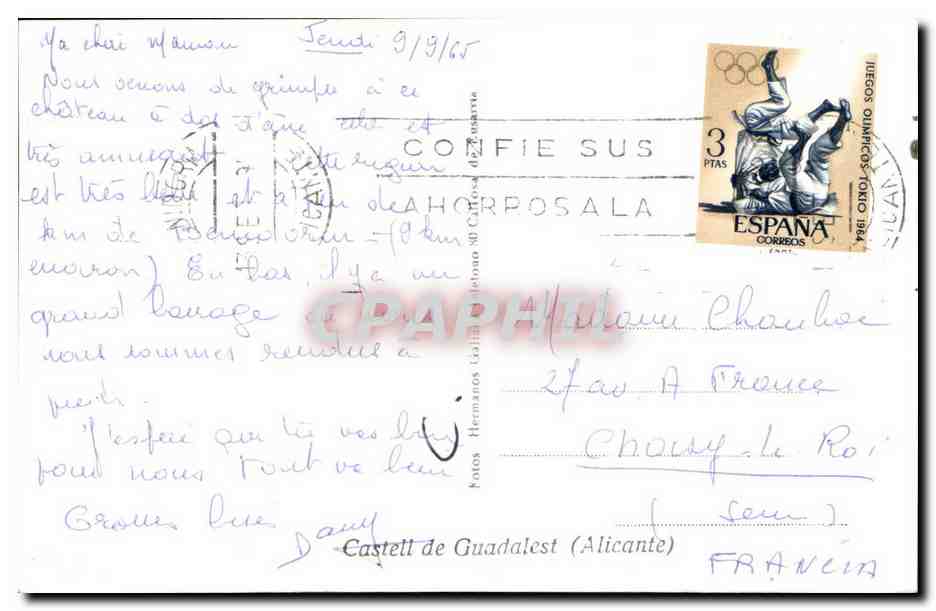 Ma chère Maman Jeudi 9/9/65
Nous venons de grimper à ce
château à dos d'âne cela est
très amusant
est très beau et à de
km de Benidorm (
environ) En bas, il y a un
grand barrage où nous
nous sommes rendus à
pieds.
J'espère que tu vas bien
pour nous tout va bien
Grosses bises
Dany
Castell de Guadalest (Alicante)
Fotos Hermanos Galiana
CONFIE SUS
AHORROS A LA
3
PTAS
ESPAÑA
CORREOS
JUEGOS OLIMPICOS TOKIO 1964
Madame
27 av A France
Choisy-le Roi
(Seine)
FRANCIA
CPAPHIL